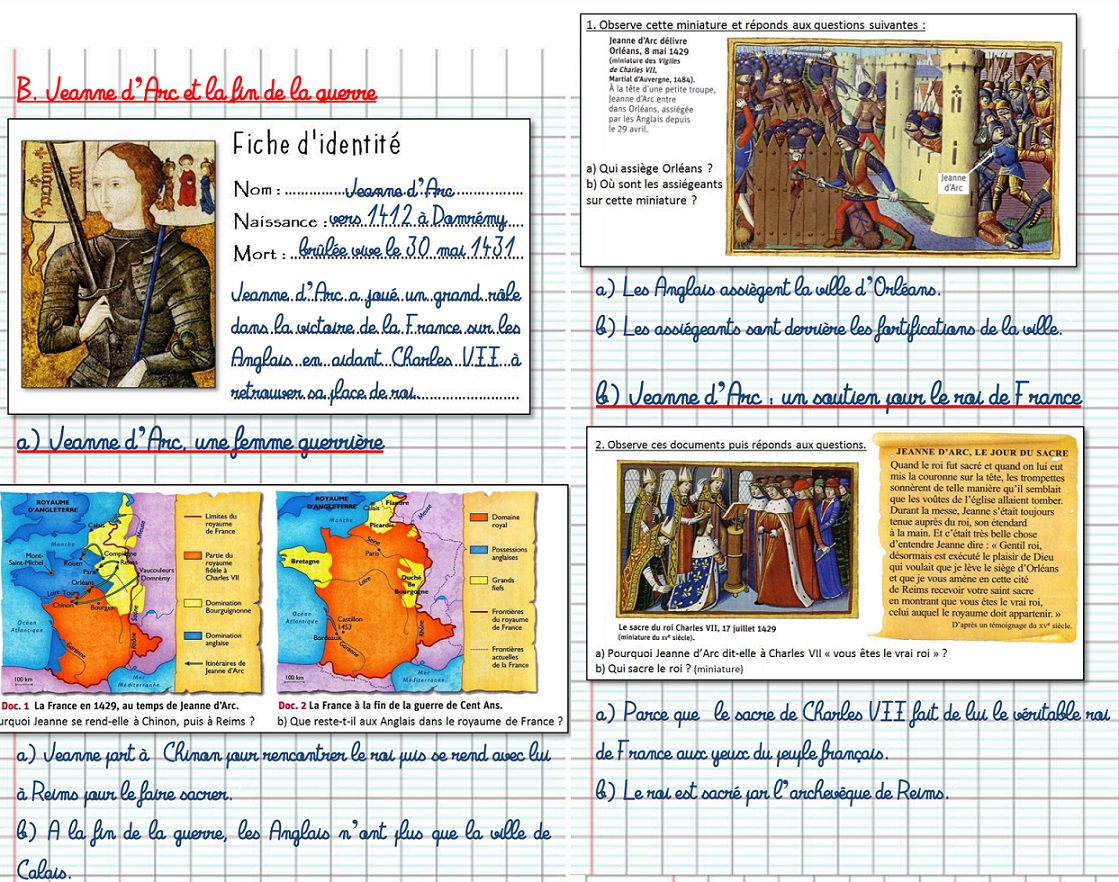 B. Jeanne d'Arc et la fin de la guerre
Fiche d'identité
Nom : ......Jeanne d'Arc......
Naissance : vers 1412 à Domrémy
Mort : brûlée vive le 30 mai 1431
Jeanne d'Arc a joué un grand rôle
dans la victoire de la France sur les
Anglais en aidant Charles VII à
retrouver sa place de roi.
a) Jeanne d'Arc, une femme guerrière
ROYAUME
D'ANGLETERRE
Calais
Manche
Meuse
Mont-
Saint-Michel
Rouen
Compiègne
Reims
Paris
Vaucouleurs
Domrémy
Orléans
Loire
Tours
Chinon
Bourges
Saône
Océan
Atlantique
Garonne
Rhône
Mer
Méditerranée
100 km
Limites du
royaume
de France
Partie du
royaume
fidèle à
Charles VII
Domination
Bourguignonne
Domination
anglaise
Itinéraires de
Jeanne d'Arc
ROYAUME
D'ANGLETERRE
Flandre
Calais
Manche
Picardie
Meuse
Seine
Paris
Bretagne
Loire
Duché
de
Bourgogne
Océan
Atlantique
Castillon
1453
Bordeaux
Garonne
Rhône
Mer
Méditerranée
100 km
Domaine
royal
Possessions
anglaises
Grands
fiefs
Frontières
du royaume
de France
Frontières
actuelles
de la France
Doc. 1 La France en 1429, au temps de Jeanne d'Arc.
urquoi Jeanne se rend-elle à Chinon, puis à Reims ?
Doc. 2 La France à la fin de la guerre de Cent Ans.
b) Que reste-t-il aux Anglais dans le royaume de France ?
a) Jeanne part à Chinon pour rencontrer le roi puis se rend avec lui
à Reims pour le faire sacrer.
b) A la fin de la guerre, les Anglais n'ont plus que la ville de
Calais.
1. Observe cette miniature et réponds aux questions suivantes :
Jeanne d'Arc délivre
Orléans, 8 mai 1429
(miniature des Vigiles
de Charles VII,
Martial d'Auvergne, 1484).
À la tête d'une petite troupe,
Jeanne d'Arc entre
dans Orléans, assiégée
par les Anglais depuis
le 29 avril.
a) Qui assiège Orléans ?
b) Où sont les assiégeants
sur cette miniature ?
Jeanne
d'Arc
a) Les Anglais assiègent la ville d'Orléans.
b) Les assiégeants sont derrière les fortifications de la ville.
b) Jeanne d'Arc : un soutien pour le roi de France
2. Observe ces documents puis réponds aux questions.
Le sacre du roi Charles VII, 17 juillet 1429
(miniature du XVe siècle).
JEANNE D'ARC, LE JOUR DU SACRE
Quand le roi fut sacré et quand on lui eut
mis la couronne sur la tête, les trompettes
sonnèrent de telle manière qu'il semblait
que les voûtes de l'église allaient tomber.
Durant la messe, Jeanne s'était toujours
tenue auprès du roi, son étendard
à la main. Et c'était très belle chose
d'entendre Jeanne dire : « Gentil roi,
désormais est exécuté le plaisir de Dieu
qui voulait que je lève le siège d'Orléans
et que je vous amène en cette cité
de Reims recevoir votre saint sacre
en montrant que vous êtes le vrai roi,
celui auquel le royaume doit appartenir. »
D'après un témoignage du XVe siècle.
a) Pourquoi Jeanne d'Arc dit-elle à Charles VII « vous êtes le vrai roi » ?
b) Qui sacre le roi ? (miniature)
a) Parce que le sacre de Charles VII fait de lui le véritable roi
de France aux yeux du peuple français.
b) Le roi est sacré par l'archevêque de Reims.